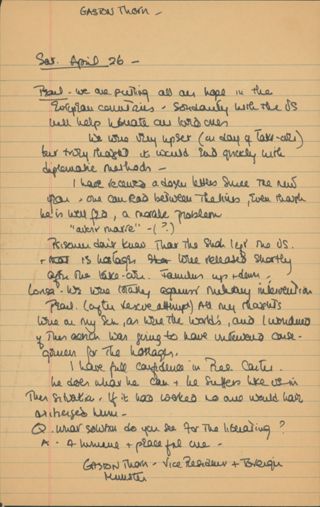 GASTON Thorn -
Sat. April 26 -
Pearl - we are putting all our hope in the
European countries - Solidarity with the US
will help liberate our loved ones
We were very upset (on day of take-over)
but truly thought it would end quickly with
diplomatic methods -
I have received a dozen letters since the new
year - one can read between the lines, even though
he is well fed, a morale problem
"avoir marre" - (?)
Prisoners don't know that the Shah left the US.
+ that 13 hostages were released shortly
after the take-over. Families up + down -
Lonsa: We were totally against military intervention
Pearl. (after rescue attempt) All my thoughts
were on my son, as were the world's, and I wondered
if this action was going to have untoward conse-
quences for the hostages.
I have full confidence in Pres. Carter.
he does what he can + he suffers like us in
this situation. If it had worked no one would have
criticized him -
Q. What solution do you see for the liberating?
A. - A humane + peaceful one -
GASTON Thorn - Vice President + Foreign
Minister